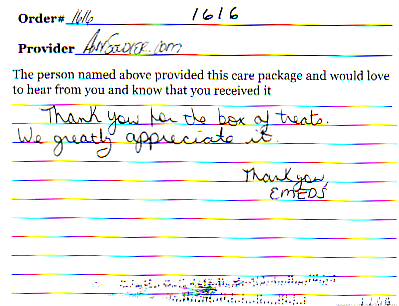 Order# 1616 1616
Provider AnySoldier.com
The person named above provided this care package and would love
to hear from you and know that you received it
Thank you for the box of treats.
We greatly appreciate it.
Thank you,
EMEDS